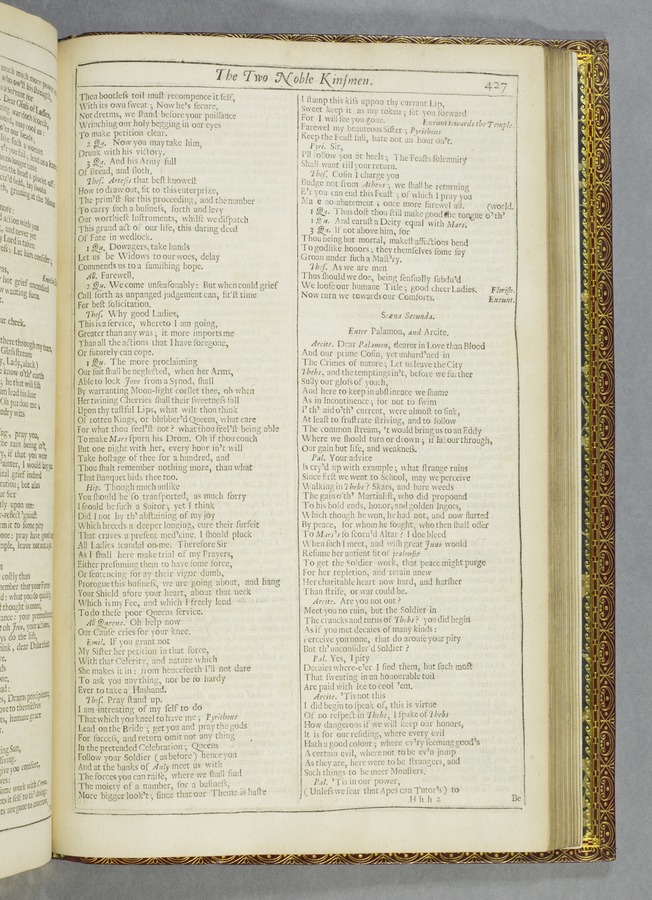 The Two Noble Kinsmen.
427
Then bootless toil must recompence it self,
With its own sweat; Now he's secure,
Not dreams, we stand before your puissance
Wrinching our holy begging in our eyes
To make petition clear.
2 Qu. Now you may take him,
Drunk with his victory.
3 Qu. And his Army full
Of Bread, and sloth.
Thes. Artesis that best knowest
How to draw out, fit to this enterprize,
The prim'st for this proceeding, and the number
To carry such a business, forth and levy
Our worthiest Instruments, whilst we dispatch
This grand act of our life, this daring deed
Of Fate in wedlock.
1 Qu. Dowagers, take hands
Let us be Widows to our woes, delay
Commends us to a famishing hope.
All. Farewell.
2 Qu. We come unseasonably: But when could grief
Cull forth as unpanged judgement can, fit'st time
For best solicitation.
Thes. Why good Ladies,
This is a service, whereto I am going,
Greater than any was; it more imports me
Than all the actions that I have foregone,
Or futurely can cope.
1 Qu. The more proclaiming
Our suit shall be neglected, when her Arms,
Able to lock Jove from a Synod, shall
By warranting Moon-light corslet thee, oh when
Her twining Cherries shall their sweetness fall
Upon thy tastful Lips, what wilt thou think
Of rotten Kings, or blubber'd Queens, what care
For what thou feel'st not? what thou feel'st being able
To make Mars spurn his Drom. Oh if thou couch
But one night with her, every hour in't will
Take hostage of thee for a hundred, and
Thou shalt remember nothing more, than what
That Banquet bids thee too.
Hip. Though much unlike
You should be so transported, as much sorry
I should be such a Suitor; yet I think
Did I not by th' abstaining of my joy
Which breeds a deeper longing, cure their surfeit
That craves a present med'cine, I should pluck
All Ladies scandal on me. Therefore Sir
As I shall here make trial of my Prayers,
Either presuming them to have some force,
Or sentencing for ay their vigor dumb,
Prorogue this business, we are going about, and hang
Your Shield afore your heart, about that neck
Which is my Fee, and which I freely lend
To do these poor Queens service.
All Queens. Oh help now
Our Cause cries for your knee.
Emil. If you grant not
My Sister her petition in that force,
With that Celerity, and nature which
She makes it in: from henceforth I'll not dare
To ask you any thing, nor be so hardy
Ever to take a Husband.
Thes. Pray stand up.
I am intreating of my self to do
That which you kneel to have me; Pyrithous
Lead on the Bride; get you and pray the gods
For success, and return omit not any thing
In the pretended Celebration; Queens
Follow your Soldier (as before) hence you
And at the banks of Anly meet us with
The forces you can raise, where we shall find
The moiety of a number, for a business,
More bigger look't; since that our Theme is haste
I stamp this kiss uppon thy currant Lip,
Sweet keep it as my token; set you forward
For I will see you gone. Exeunt towards the Temple.
Farewel my beauteous Sister; Pyrithous
Keep the Feast full, bate not an hour on't.
Pyri. Sir,
I'll follow you at heels; The Feasts solemnity
Shall want till your return.
Thes. Cosin I charge you
Budge not from Athens; we shall be returning
E'r you can end this Feast; of which I pray you
Make no abatement; once more farewel all. (world.
1 Qu. Thus dost thou still make good the tongue o'th'
2 Qu. And earnst a Deity equal with Mars.
3 Qu. If not above him, for
Thou being but mortal, makest affections bend
To godlike honors; they themselves some say
Groan under such a Mast'ry.
Thes. As we are men
Thus should we doe, being sensually subdu'd
We loose our humane Title; good cheer Ladies. Florish.
Now turn we towards our Comforts. Exeunt.
Scæna Secunda.
Enter Palamon, and Arcite.
Arcite. Dear Palamon, dearer in Love than Blood
And our prime Cosin, yet unhard'ned in
The Crimes of nature; Let us leave the City
Thebs, and the temptings in't, before we further
Sully our gloss of youth,
And here to keep in abstinence we shame
As in Incontinence; for not to swim
I'th' aid o'th' current, were almost to sink,
At least to frustrate striving, and to follow
The common stream, 't would bring us to an Eddy
Where we should turn or drown; if labour through,
Our gain but life, and weakness.
Pal. Your advice
Is cry'd up with example; what strange ruins
Since first we went to School, may we perceive
Walking in Thebs? Skars, and bare weeds
The gain o'th' Martialist, who did propound
To his bold ends, honor, and golden Ingots,
Which though he won, he had not, and now flurted
By peace, for whom he fought, who then shall offer
To Mars's so scorn'd Altar? I doe bleed
When such I meet, and wish great Juno would
Resume her antient fit of jealousie
To get the Soldier work, that peace might purge
For her repletion, and retain anew
Her charitable heart now hard, and harsher
Than strife, or war could be.
Arcite. Are you not out?
Meet you no ruin, but the Soldier in
The crancks and turns of Thebs? you did begin
As if you met decaies of many kinds:
Perceive you none, that do arouse your pity
But th' unconsider'd Soldier?
Pal. Yes, I pity
Decaies where-e'er I find them, but such most
That sweating in an honourable toil
Are paid with ice to cool 'em.
Arcite. 'Tis not this
I did begin to speak of, this is virtue
Of no respect in Thebs, I spake of Thebs
How dangerous if we will keep our honors,
It is for our residing, where every evil
Hath a good colour; where ev'ry seeming good's
A certain evil, where not to be ev'n jump
As they are, here were to be strangers, and
Such things to be meer Monsters.
Pal. 'Tis in our power,
(Unless we fear that Apes can Tutor's) to
Hhh 2
Be